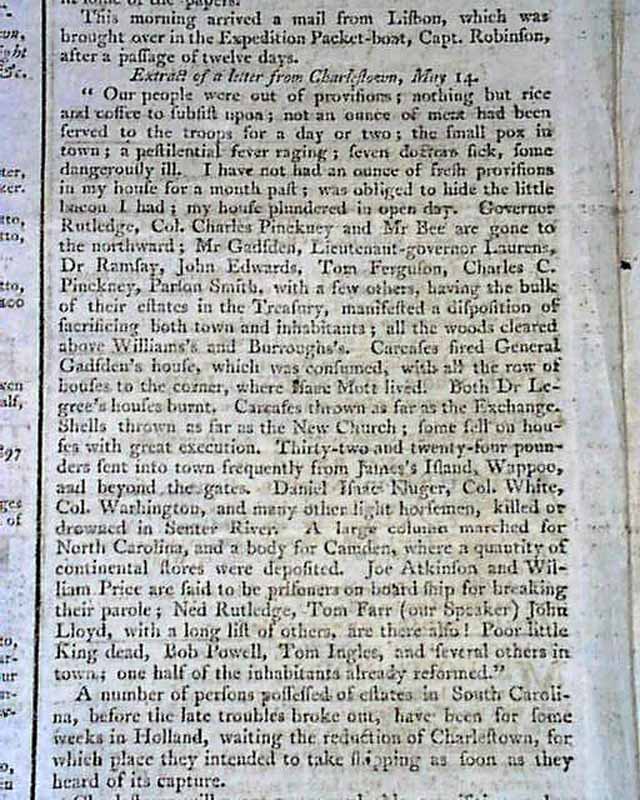 This morning arrived a mail from Liſbon, which was
brought over in the Expedition Packet-boat, Capt. Robinſon,
after a paſſage of twelve days.
Extract of a letter from Charleſtown, May 14.
“ Our people were out of proviſions ; nothing but rice
and coffee to ſubſiſt upon ; not an ounce of meat had been
ſerved to the troops for a day or two ; the ſmall pox in
town ; a peſtilential fever raging ; ſeven doctors ſick, ſome
dangerouſly ill. I have not had an ounce of freſh proviſions
in my houſe for a month paſt ; was obliged to hide the little
bacon I had ; my houſe plundered in open day. Governor
Rutledge, Col. Charles Pinckney and Mr Bee are gone to
the northward ; Mr Gadſden, Lieutenant-governor Laurens,
Dr Ramſay, John Edwards, Tom Ferguſon, Charles C.
Pinckney, Parſon Smith, with a few others, having the bulk
of their eſtates in the Treaſury, manifeſted a diſpoſition of
ſacrificing both town and inhabitants ; all the woods cleared
above Williams's and Burroughs's. Carcaſes fired General
Gadſden's houſe, which was conſumed, with all the row of
houſes to the corner, where Iſaac Mott lived. Both Dr Le-
gree's houſes burnt. Carcaſes thrown as far as the Exchange.
Shells thrown as far as the New Church ; ſome fell on hou-
ſes with great execution. Thirty-two and twenty-four poun-
ders ſent into town frequently from James's Iſland, Wappoo,
and beyond the gates. Daniel Iſaac Kluger, Col. White,
Col. Waſhington, and many other light horſemen, killed or
drowned in Senter River. A large column marched for
North Carolina, and a body for Camden, where a quantity of
continental ſtores were depoſited. Joe Atkinſon and Wil-
liam Price are ſaid to be priſoners on board ſhip for breaking
their parole ; Ned Rutledge, Tom Farr (our Speaker) John
Lloyd, with a long liſt of others, are there alſo ! Poor little
King dead, Bob Powell, Tom Ingles, and ſeveral others in
town ; one half of the inhabitants already reformed.”
A number of perſons poſſeſſed of eſtates in South Caroli-
na, before the late troubles broke out, have been for ſome
weeks in Holland, waiting the reduction of Charleſtown, for
which place they intended to take ſhipping as ſoon as they
heard of its capture.